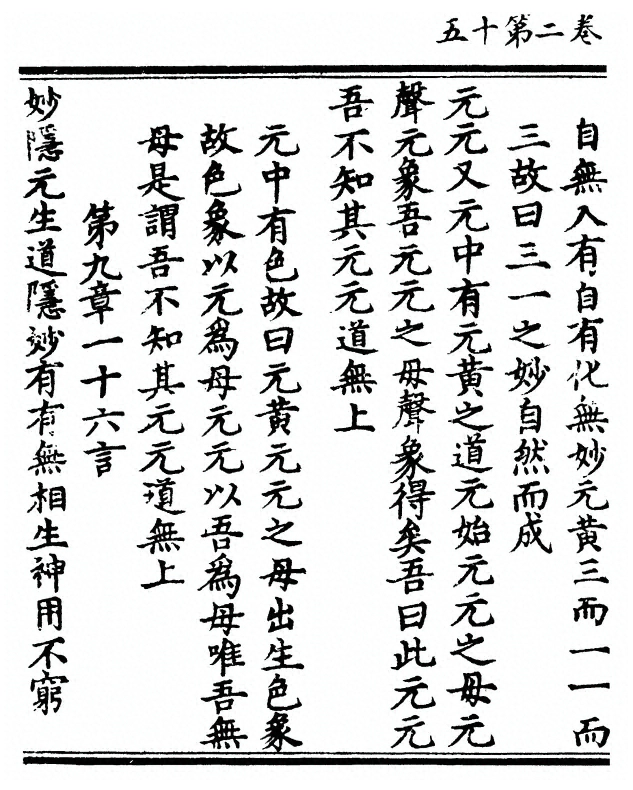 卷二第十五
自無入有自有化無妙元黃三而一一而
三故曰三一之妙自然而成
元元又元中有元黃之道元始元元之母元
聲元象吾元元之母聲象得矣吾曰此元元
吾不知其元元道無上
元中有色故曰元黃元元之母出生色象
故色象以元爲母元元以吾爲母唯吾無
母是謂吾不知其元元道無上
第九章一十六言
妙隱元生道隱妙有有無相生神用不窮